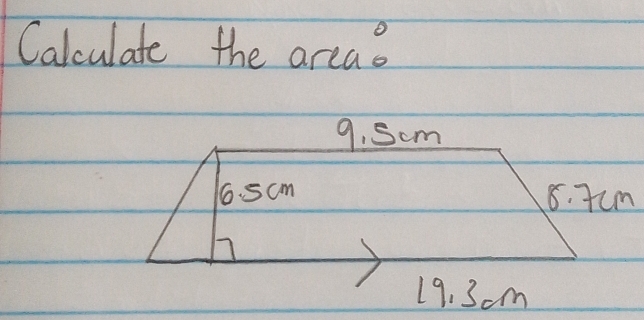 Calculate the area:
9.5cm
6.5cm
8.7cm
19.3cm